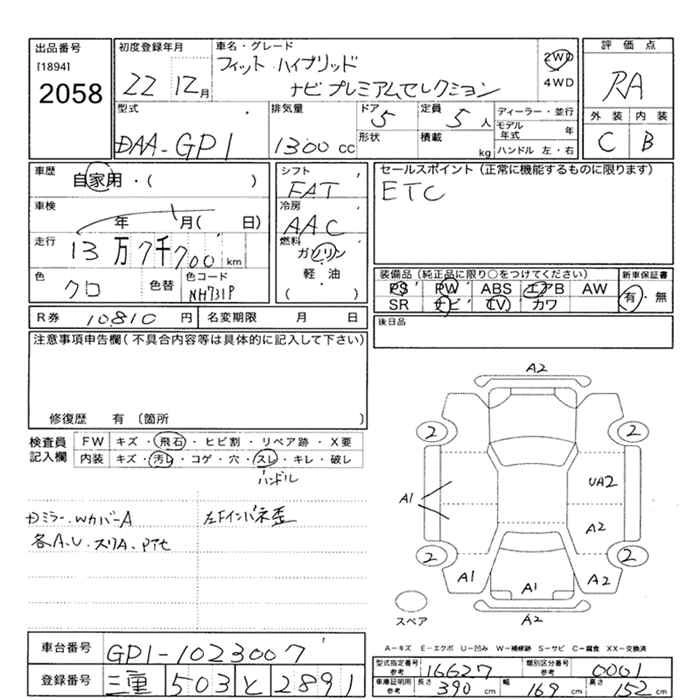 出品番号
[1894]
2058
初度登録年月
22 12月
車名・グレード
フィット ハイブリッド
ナビプレミアムセレクション
2WD
4WD
評価点
RA
外装 内装
C B
型式
DAA-GP1
排気量
1300 cc
ドア 5
形状
定員 5 人
積載 kg
ディーラー・並行
モデル年式 年
ハンドル 左・右
車歴
自家用・( )
車検
年 月( 日)
走行
13万7千700 km
色
クロ
色替
色コード
NH731P
シフト
FAT
冷房
AAC
燃料
ガソリン
軽・油
( )
セールスポイント (正常に機能するものに限ります)
ETC
装備品 (純正品に限り○をつけてください)
PS PW ABS エアB AW
SR ナビ TV カワ
新車保証書
有・無
R券 10810 円
名変期限 月 日
後日品
注意事項申告欄(不具合内容等は具体的に記入して下さい)
修復歴 有 (箇所 )
検査員
記入欄
FW キズ・飛石・ヒビ割・リペア跡・X要
内装 キズ・汚レ・コゲ・穴・スレ・キレ・破レ
ハンドル
Dミラー.Wカバー A
各A.U.スリA.Pﾅﾋ
左Fインパネ歪
A2
2 2
UA2
A1
A2
2 2
A1 A1 A2
A2
スペア
A-キズ E-エクボ U-凹み W-補修跡 S-サビ C-腐食 XX-交換済
車台番号 GP1-1023007
登録番号 三重 503 と 2891
型式指定番号 参考 16627
類別区分番号 参考 0001
車庫証明用 参考 長さ 390 cm 幅 169 cm 高さ 152 cm